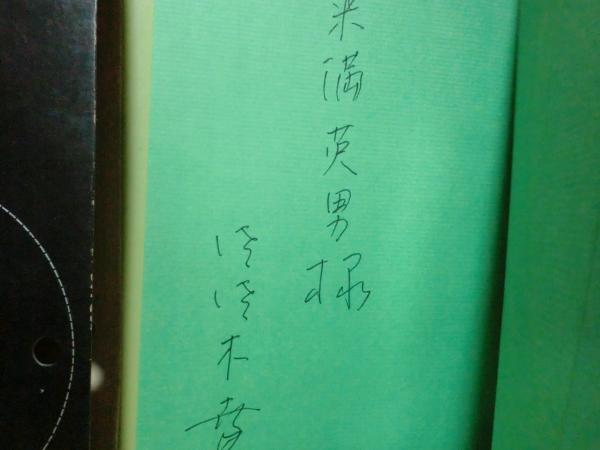 米満英男様
佐佐木